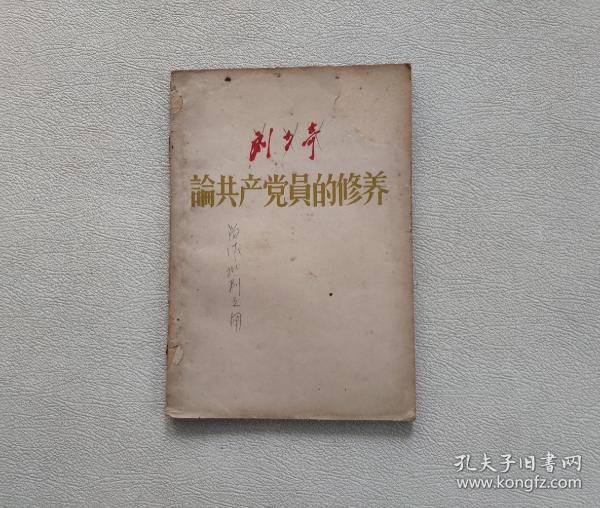 刘少奇
論共产党員的修养
留作批判之用
孔夫子旧書网
www.kongfz.com